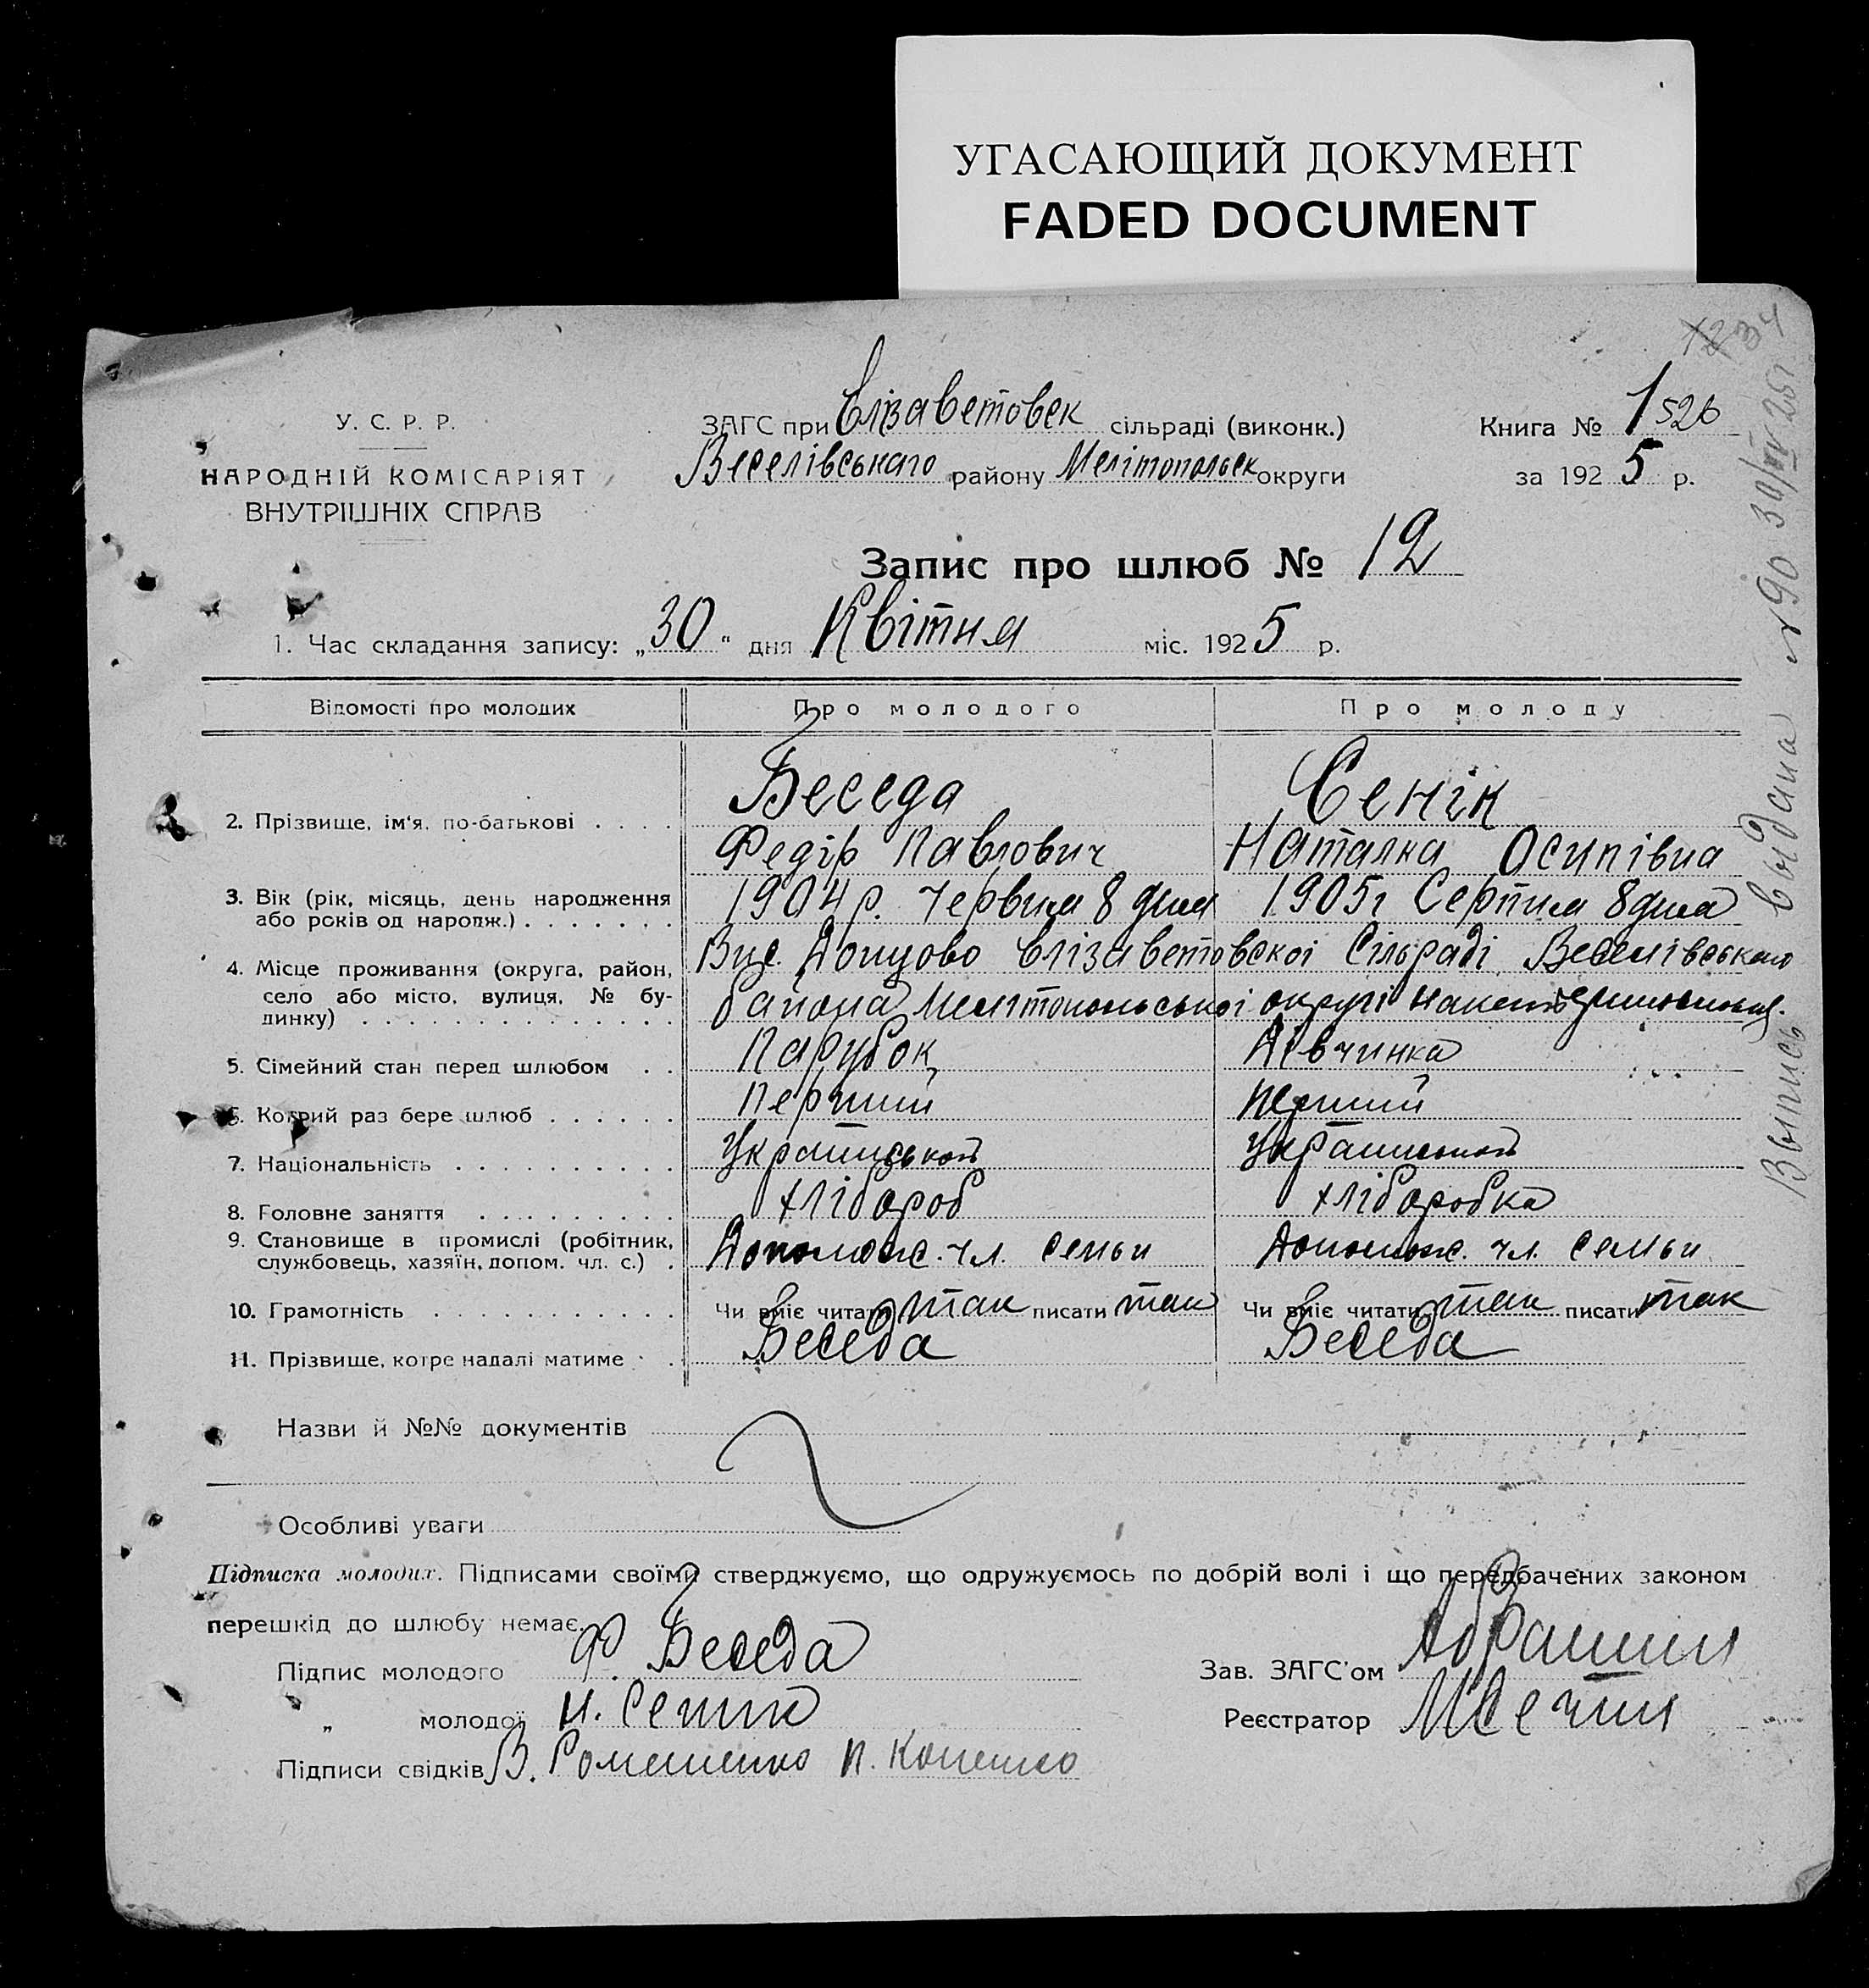 УГАСАЮЩИЙ ДОКУМЕНТ
FADED DOCUMENT
12 34
У. С. Р. Р.
НАРОДНІЙ КОМІСАРІЯТ
ВНУТРІШНІХ СПРАВ
ЗАГС при Єлізаветовск сільраді (виконк.)
Веселівського району Мелітопольск округи
Книга № 1 526
за 1925 р.
Запис про шлюб № 12
1. Час складання запису: „30" дня Квітня міс. 1925 р.
Відомості про молодих Про молодого Про молоду
2. Прізвище, ім'я, по-батькові . . . . Беседа Сенік
Федір Павлович Наталка Осипівна
3. Вік (рік, місяць, день народження або років од народж.) . . . . . . . 1904 р. Червня 8 дня 1905 г Серпня 8 дня
4. Місце проживання (округа, район, село або місто, вулиця, № будинку) . . . . . . . . . . . . . . Вис. Донцово Єлізаветовскоі Сільраді Веселівського
района Мелітопольської округі
5. Сімейний стан перед шлюбом . . Парубок Дівчинка
6. Котрий раз бере шлюб . . . . . . Перший Перший
7. Національність . . . . . . . . . . Української Української
8. Головне заняття . . . . . . . . . Хлібороб Хліборобка
9. Становище в промислі (робітник, службовець, хазяїн, допом. чл. с.) . Допомож. чл. семьи Допомож. чл. семьи
10. Грамотність . . . . . . . . . . . Чи вміє читати так писати так Чи вміє читати так писати так
11. Прізвище, котре надалі матиме . . Беседа Беседа
Назви й №№ документів
Особливі уваги
Підписка молодих. Підписами своїми стверджуємо, що одружуємось по добрій волі і що передбачених законом
перешкід до шлюбу немає.
Підпис молодого Ф. Беседа
„ молодої Н. Сенік
Підписи свідків В. Романенко П.
Зав. ЗАГС'ом
Реєстратор
Выпись выдана № 90 30/IV 25г